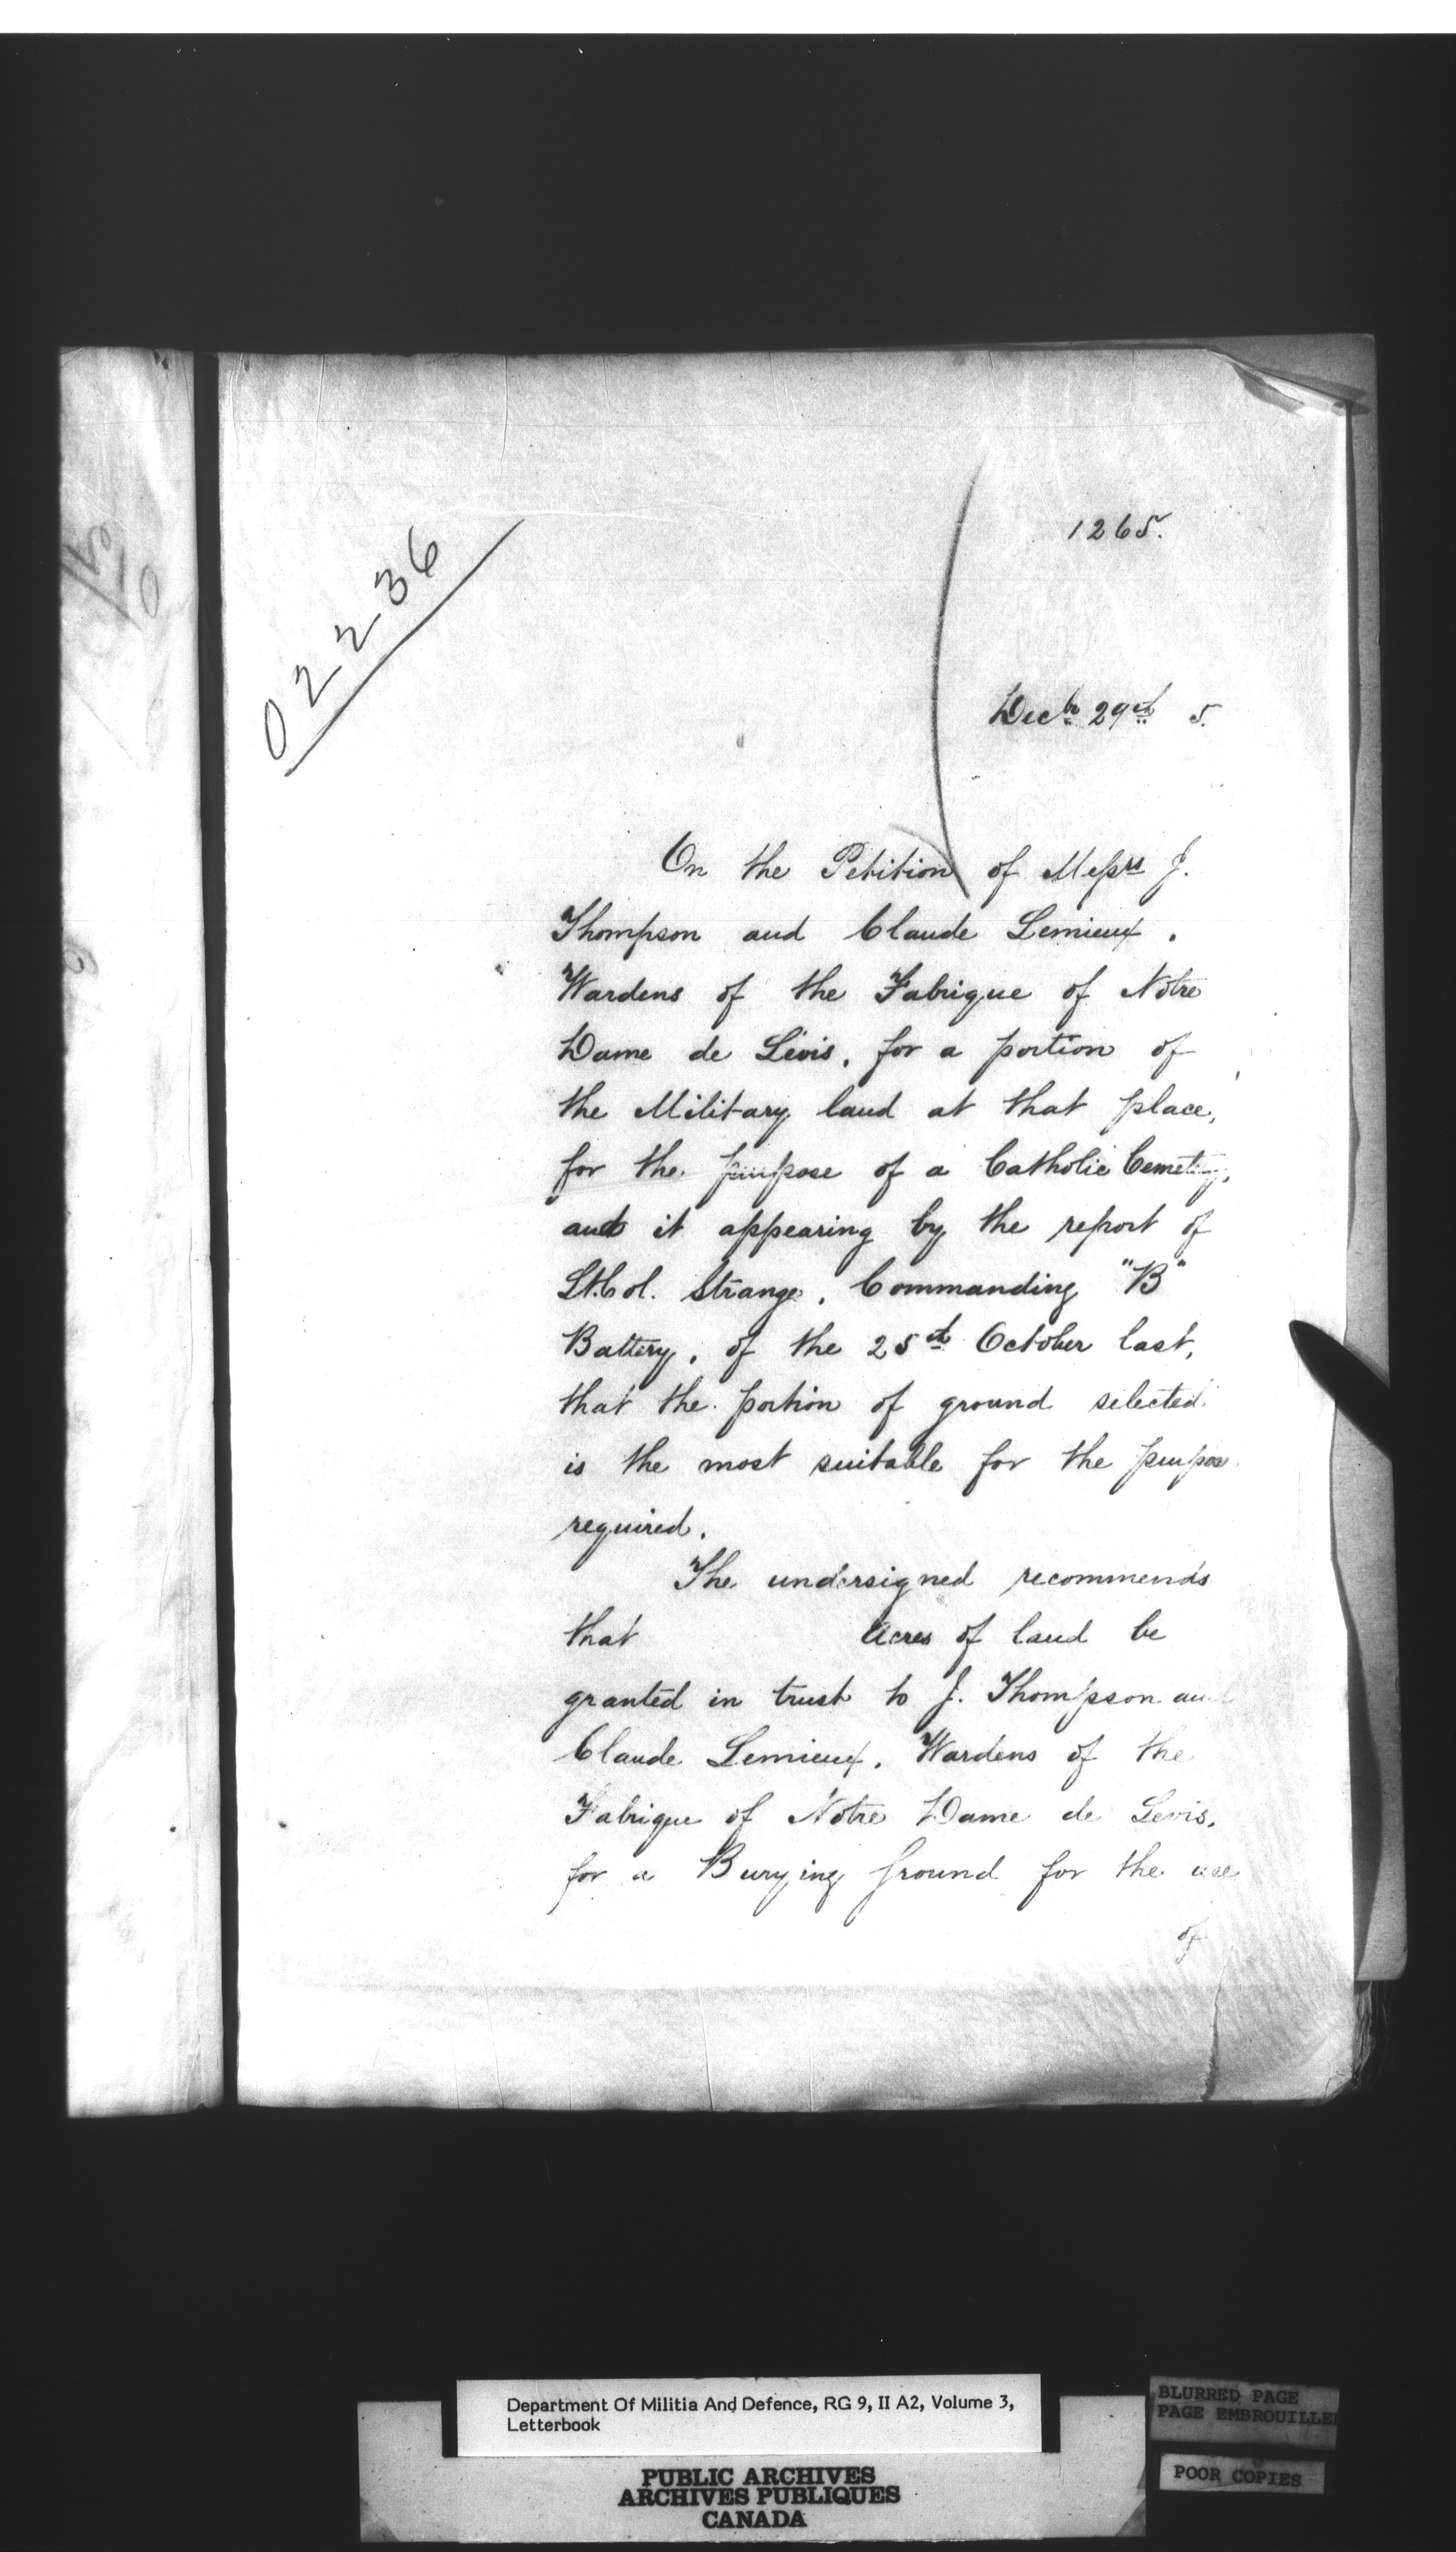 02236
1265.
Decbr 29th 5.
On the Petition of Messrs J.
Thompson and Claude Lemieux.
Wardens of the Fabrique of Notre
Dame de Lévis, for a portion of
the Military land at that place,
for the purpose of a Catholic Cemetery,
and it appearing by the report of
Lt. Col. Strange, Commanding "B"
Battery, of the 25th October last,
that the portion of ground selected
is the most suitable for the purpose
required.
The undersigned recommends
that Acres of land be
granted in trust to J. Thompson and
Claude Lemieux, Wardens of the
Fabrique of Notre Dame de Levis,
for a Burying Ground for the use
of
Department Of Militia And Defence, RG 9, II A2, Volume 3,
Letterbook
PUBLIC ARCHIVES
ARCHIVES PUBLIQUES
CANADA
BLURRED PAGE
PAGE EMBROUILLEE
POOR COPIES